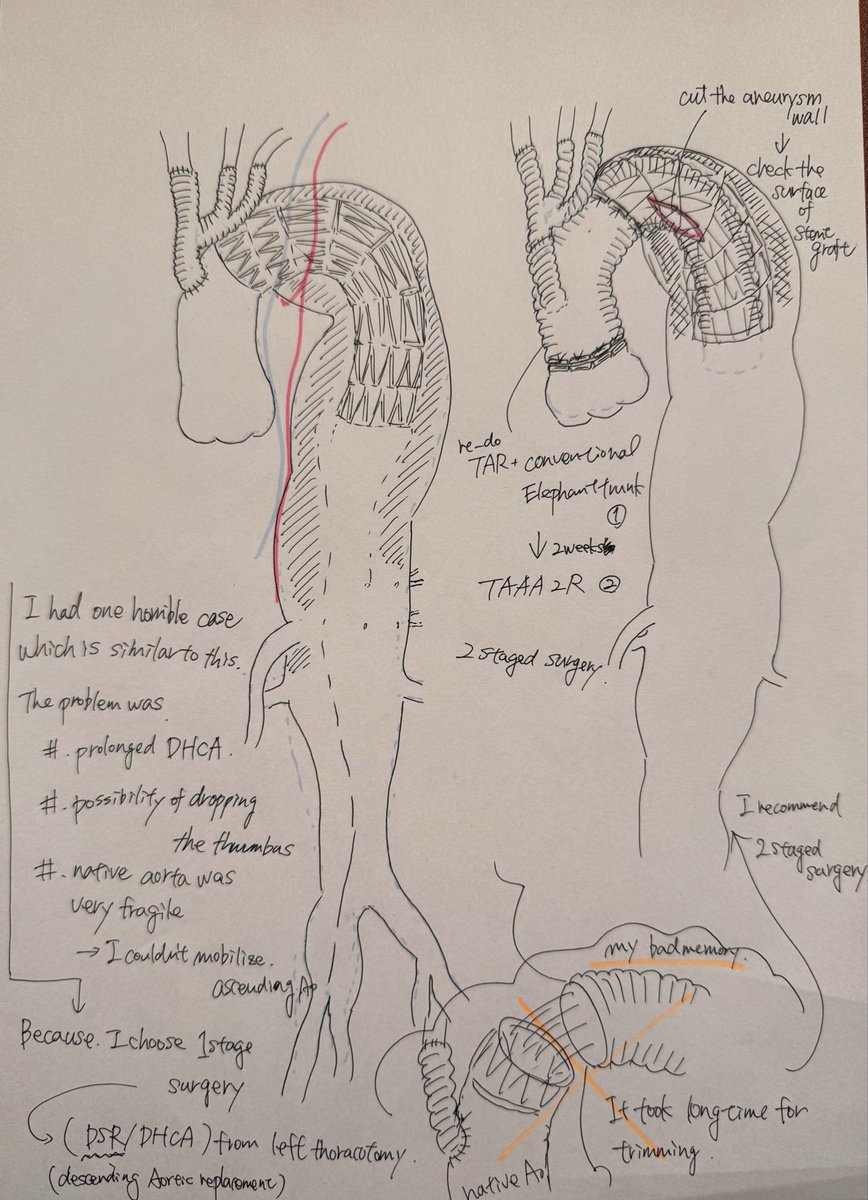 cut the aneurysm
wall
↓
check the
surface
of
stone
graft
re-do
TAR + conventional
Elephant trunk
①
↓ 2weeks
TAAA 2R ②
2 staged surgery.
I had one horrible case
which is similar to this.
The problem was
#. prolonged DHCA.
#. possibility of dropping
the thumbas
#. native aorta was
very fragile
→ I couldn't mobilize.
ascending Ao
Because. I choose 1stage
surgery
(DSR/DHCA) from left thoracotomy.
(descending Aortic replacement)
I recommend
2 staged
surgery
my bad memory.
It took long time for
trimming.
native Ao